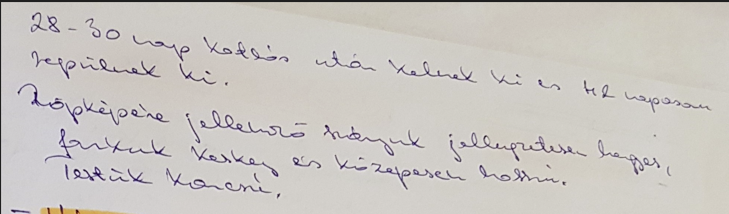 28-30 nap kotlás után kelnek ki és 42 naposan
repülnek ki.
Röpképére jellemző szárnyuk jellegzetesen hegyes,
farkuk keskeny és közepesen hosszú.
Testük karcsú.